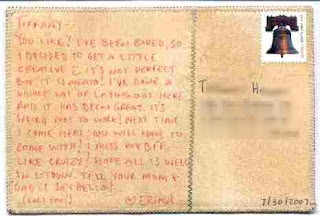 TIFFANY-
YOU LIKE? I'VE BEEN BORED, SO
I DECIDED TO GET A LITTLE
CREATIVE. IT'S NOT PERFECT
BUT IT
WHOLE LOT OF LAYING OUT HERE
AND IT HAS BEEN GREAT. IT'S
WEIRD NOT TO WORK! NEXT TIME
I COME HERE YOU WILL HAVE TO
COME WITH! I MISS MY BFF
LIKE CRAZY! HOPE ALL IS WELL
IN TELL YOUR MOM &
DAD I SAY HELLO!
♡ ERIKA
T H
7/30/2007